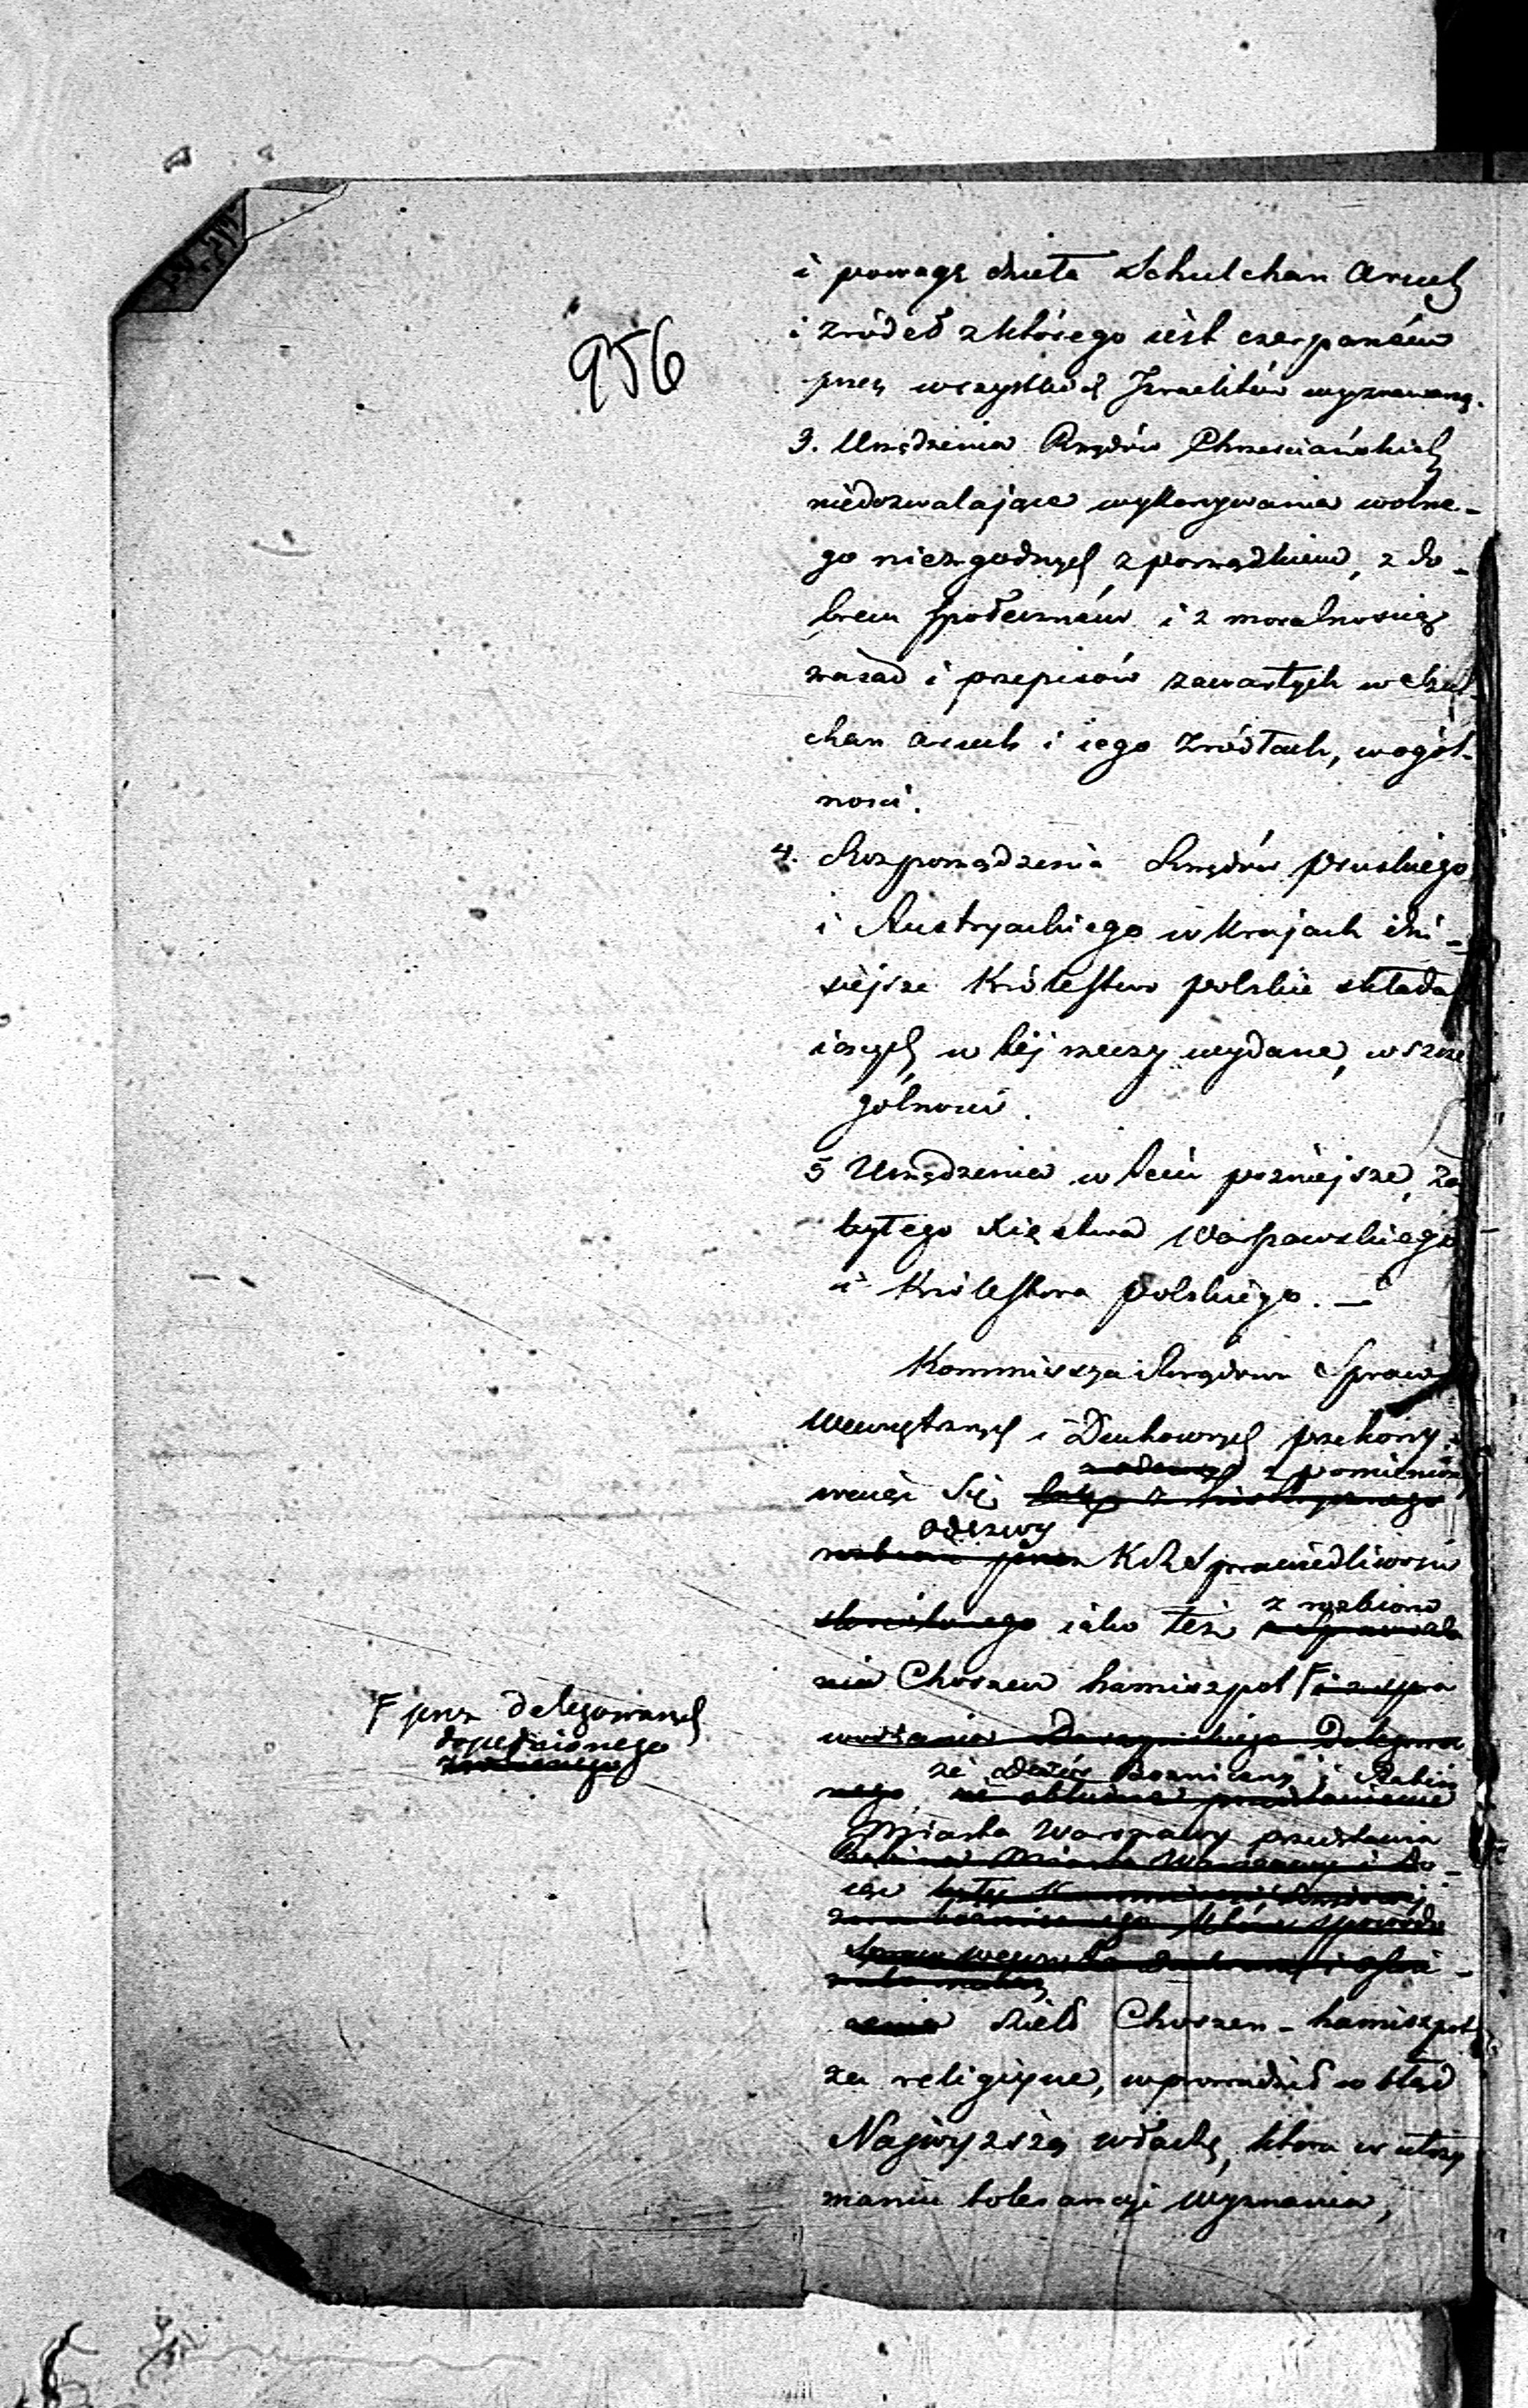 956
i powagę dzieła Schulchan Aruch
i źródeł z którego iest czerpaném
przez wszystkich Izraelitów wyznawaną.
3. Urządzenia Rządów Chrześciańskich
niedozwalające wykonywania wolne-
go niezgodnych z porządkiem, z do-
brem społeczném i z moralnością
zasad i przepisów zawartych w Szul-
chan aruch i iego źródłach, w ogól-
ności.
4. Rozporządzenia Rządów pruskiego
i Austryackiego w krajach dzi-
siejsze Królestwo polskie składa
iących w téj rzeczy wydane, w szcze
gólności.
5 Urządzenia w tém pozniejsze, za
byłego Xięstwa Warszawskiego
i Królestwa Polskiego. —
Kommissya Rządowa Spraw
Wewnętrznych i Duchownych przekony-
z pomienion
wając się
odezwy
K R Sprawiedliwości
z rozbioru
iako też
Choszen hamiszpot F
F przez delegowanych
dopełnionego
że Dozór bożniczy i Rabin
Miasta Warszawy przedstawia
iąc
dzieło Choszen-hamiszpot
za religijne, wprowadził w błąd
Najwyższą władzę, która w utrzy
maniu tolerancyi Wyznania,